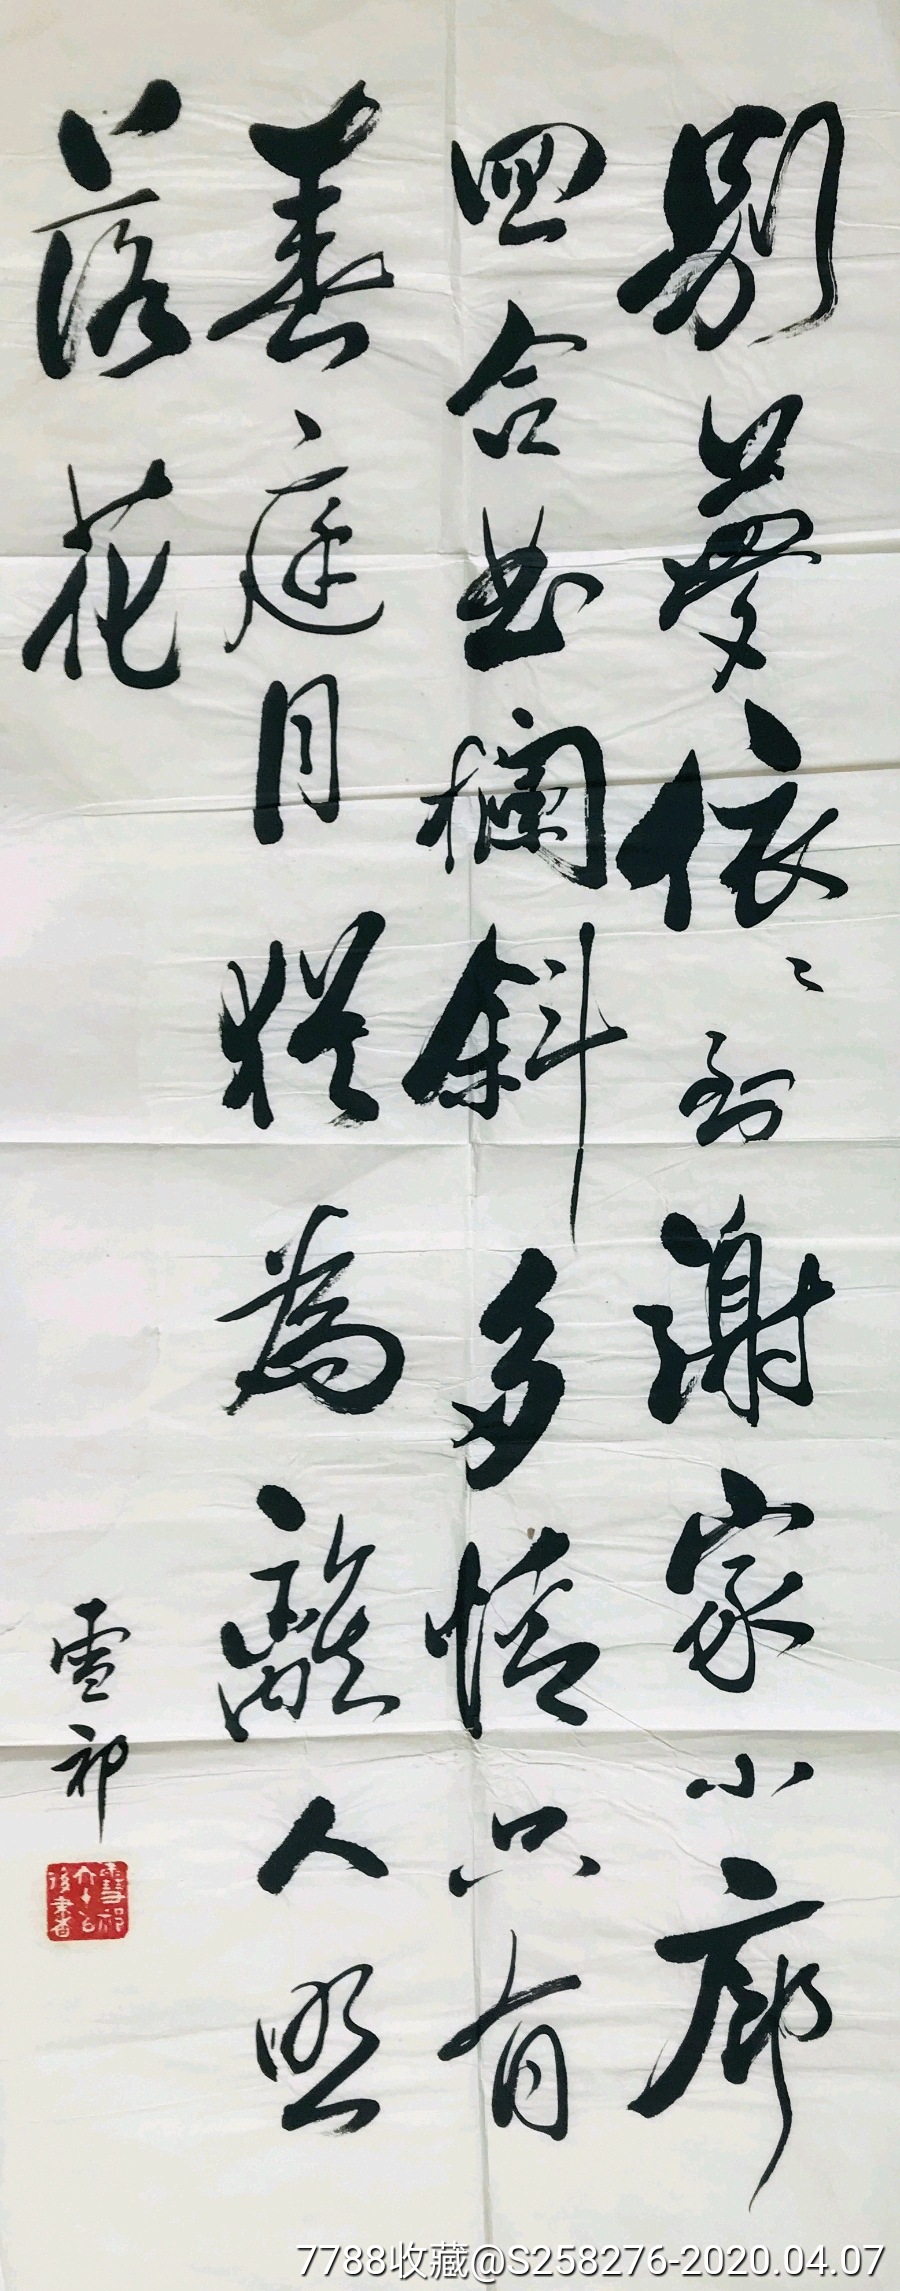 別夢依〻到謝家小廊
回合曲欄斜多情只有
春庭月猶為離人照
下落花
雪祁
7788收藏@S258276-2020.04.07